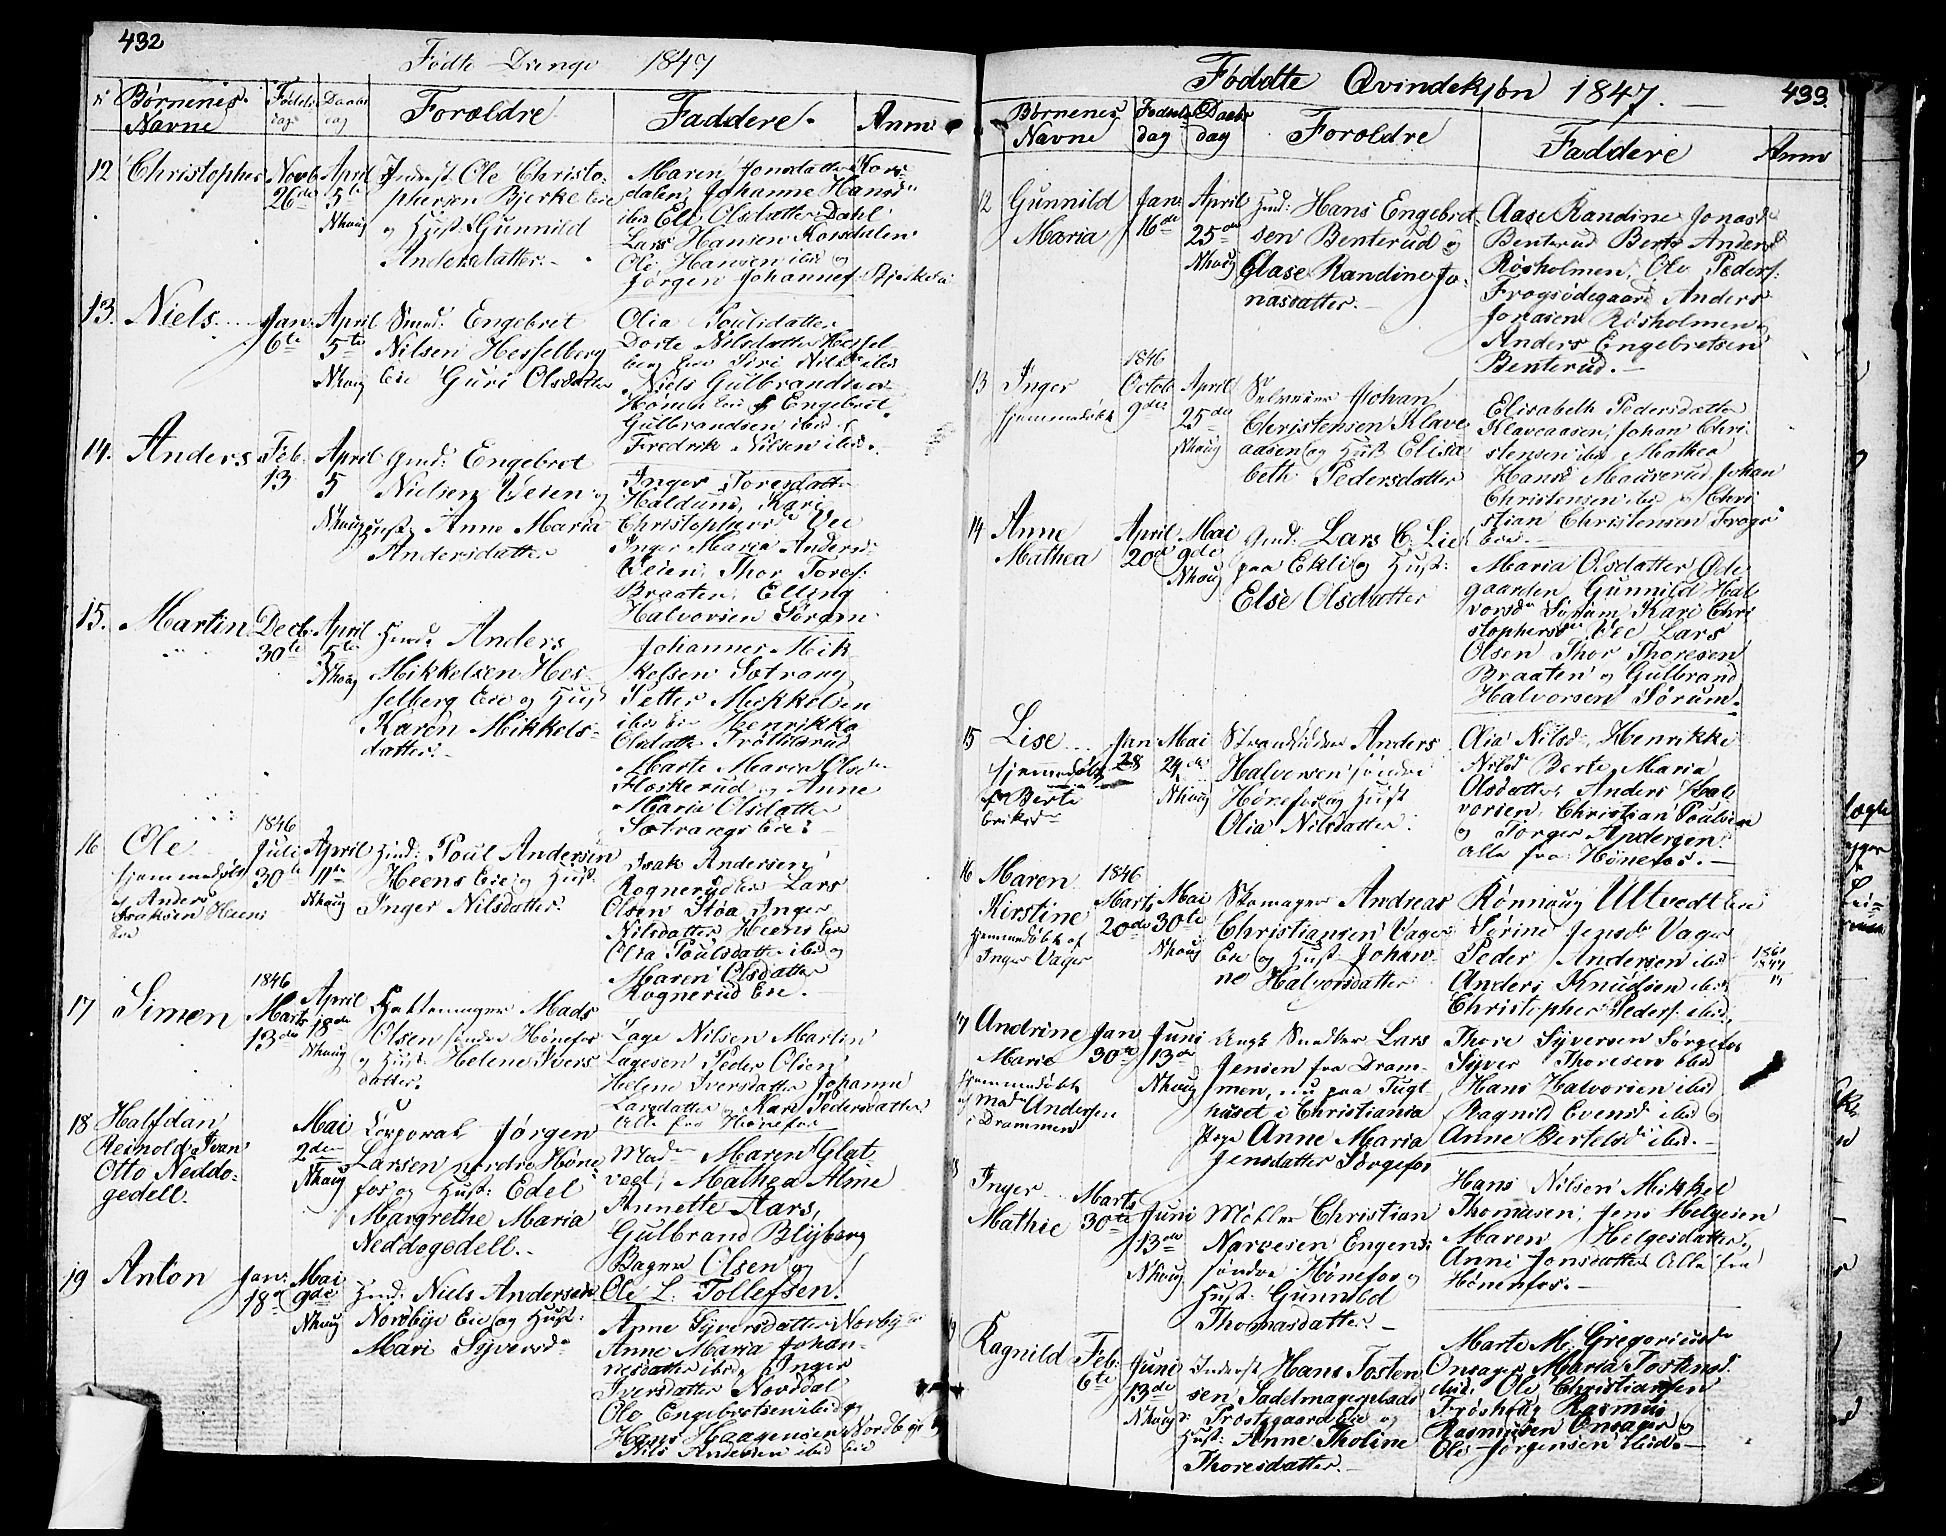 432
Fødte Drenge 1847
Nº Børnenes Navne Fødsels dag Daabs dag Forældre Faddere Anm:
12 Christopher Novb. 26de April 5te Nhoug
Inderst Ole Christo-
phersen Bjerke Eie
og Hust: Gunnild
Andersdatter.
Maren Jonsdatter Kors-
dalen, Johanne Hansd
ibd Eli Olsdatter Dahl
Lars Hansen Korsdalen
Ole Hansen ibd og
Jørgen Johannes:
13. Niels Jan: 6te April 5te Nhoug
Smed: Engebret
Nilsen Hesselberg
Eie Guri Olsdatter
Olia Poulsdatter
Dorte Nilsdatter Hessel-
berg Eie Siri Nilsd ibd
Niels Gulbrandsen
Hønen Eie Engebret
Gulbrandsen ibid
Fredrik Nilsen ibd.
14. Anders Feb: 13 April 5 Nhoug
Gmd: Engebret
Nielsen Veien og
Hust: Anne Maria
Andersdatter
Inger Toresdatter
Haldum, Kari
Christophersd Vee
Inger Maria Andersd
Veien, Thor Toresf:
Braaten, Elling
Halvorsen Sørum
15. Martin Decb: 30te April 5te Nhoug
Hmd: Anders
Mikkelsen Hes-
selberg Eie og Hust
Karen Mikkels-
datter.
Johannes Mik-
kelsen Sætrang
Petter Mikkelsen
ibd Eie Henrikka
Olsdatter Trøllerud
Marte Maria Olsdr
Floskerud og Anne
Maria Olsdatter
Sætrangs Eie:
16 Ole 1846 Juli 30te April 11te Nhoug
hjemmedøbt
af Anders
Isaksen Heens
Eie
Hmd: Poul Andersen
Heens Eie og Hust:
Inger Nilsdatter.
Isak Andersen
Rognerud Eie Lars
Olsen Støa, Inger
Nilsdatter Heens Eie
Olia Poulsdatter ibd og
Maren Olsdatter
Rognerud Eie.
17 Simen 1846 Marts 13de April 18de Nhoug
Hattemager Mads
Olsen søndre Hønefos
og Hust Helene Ivers-
datter.
Lage Nilsen Martin
Lagesen Peder Olsen
Helene Iversdatter Johanne
Larsdatter og Kari Pedersdatter
Alle fra Hønefos
18 Halfdan
Reinoldt Ivan
Otto Neddo-
gedell.
Mai 2den Nhoug
Corporal Jørgen
Larsen nordre Høne-
fos og Hust: Edel
Margrethe Maria
Neddegedell.
Madm Maren Glat-
ved, Mathea Alme
Annette Aars,
Gulbrand Blyberg
Bager Olsen og
Ole L. Tollefsen.
19 Anton Jan: 18de Mai 9de Nhoug
Hmd: Niels Andersen
Nordbye Eie og Hust:
Mari Syversdr
Anne Syversdatter Nordby
Anne Maria Johan-
nesdatter ibd, Inger
Iversdatter Norddal
Ole Engebretsen ibd og
Hans Haagensen Nordbye
Nils Andersen ibd Eie
433.
Fødøtte Qvindekjøn 1847.
Børnenes Navne Fødsels dag Daabs dag Forældre Faddere Anm
12 Gunnild Maria Jan: 16de April 25de Nhoug
Hmd: Hans Engebret-
sen Benterud og
Aase Randine Jo-
nasdatter.
Aase Randine Jonasdr
Benterud Berte Andersd
Røsholmen, Ole Pedersf:
Frogsødegaard Anders
Jonasen Røsholmen og
Anders Engebretsen
Benterud.
13 Inger 1846 Octob 9de April 25de Nhoug
hjemmedøbt
Selveier Johan
Christensen Klave-
aasen og Hust Elisa-
beth Pedersdatter
Elisabeth Pedersdatter
Klaveaasen, Johan Chri-
stensen ibd Mathea
Hansd Maurerud, Johan
Christensen ibd og Chri-
stian Christensen Frogs
Eie.
14 Anne Mathea April 20de Mai 9de Nhoug
Gmd: Lars C. Lie
paa Ekli og Hust:
Else Olsdatter
Maria Olsdatter Øde-
gaarden Gunnild Hal-
vorsdr Sørum, Kari Chri-
stophersdr Vee Lars
Olsen Thor Thoresen
Braaten og Gulbrand
Halvorsen Sørum.
15 Lise Jan 28 Mai 24de Nhoug
hjemmedøbt
af Berte
Eriksdr
Strandsidder Anders
Halvorsen søndre
Hønefos og Hust
Olia Nilsdatter
Olia Nilsdr, Henrikke
Nilsd Berte Maria
Olsdatter, Anders Hal-
vorsen, Christian Poulsen
og Torger Andersen.
Alle fra Hønefos.
16 Maren Kirstine 1846 Marts 20de Mai 30te Nhoug
hjemmedøbt af
Inger Vager
Skomager Andreas
Christiansen Vager
Eie og Hust Johan-
ne Halvorsdatter
Rønnaug Ultvedt Eie
Sørine Jensdr Vager
Peder Andersen ibd
Anders Knudsen ibd
Christopher Pedersf: ibd.
17 Andrine Marie Jan 30te Juni 13de Nhoug
hjemmedøbt
af Madm Andersen
i Drammen
Ungk Snedker Lars
Jensen fra Dram-
men, nu paa Tugt-
huset i Christiania
Pige Anne Maria
Jensdatter Sørgefos
Thore Syversen Sørgefos
Syver Thoresen ibd
Hans Halvorsen ibd
Ragnild Evensd ibd og
Anne Bertelsdr ibd.
18 Inger Mathie Marts 30te Juni 13de Nhoug
Møller Christian
Narvesen Engens
søndre Hønefos og
Hust: Gunnild
Thomasdatter.
Hans Nilsen Mikkel
Thomasen, Jens Helgesen
Maren Helgesdatter og
Anne Jonsdatter Alle fra
Hønenfos.
19 Ragnild Feb: 6te Juni 13de Nhoug
Inderst Hans Tosten-
sen Sadelmagerplads
Prostegaards Eie og
Hust: Anne Tholine
Thoresdatter.
Marte M. Gregoriusdr
Onsager Maria Tostensd
ibid: Ole Christiansen
Frøshoug Rasmus
Rasmussen Onsager og
Ole Jørgensen ibid.